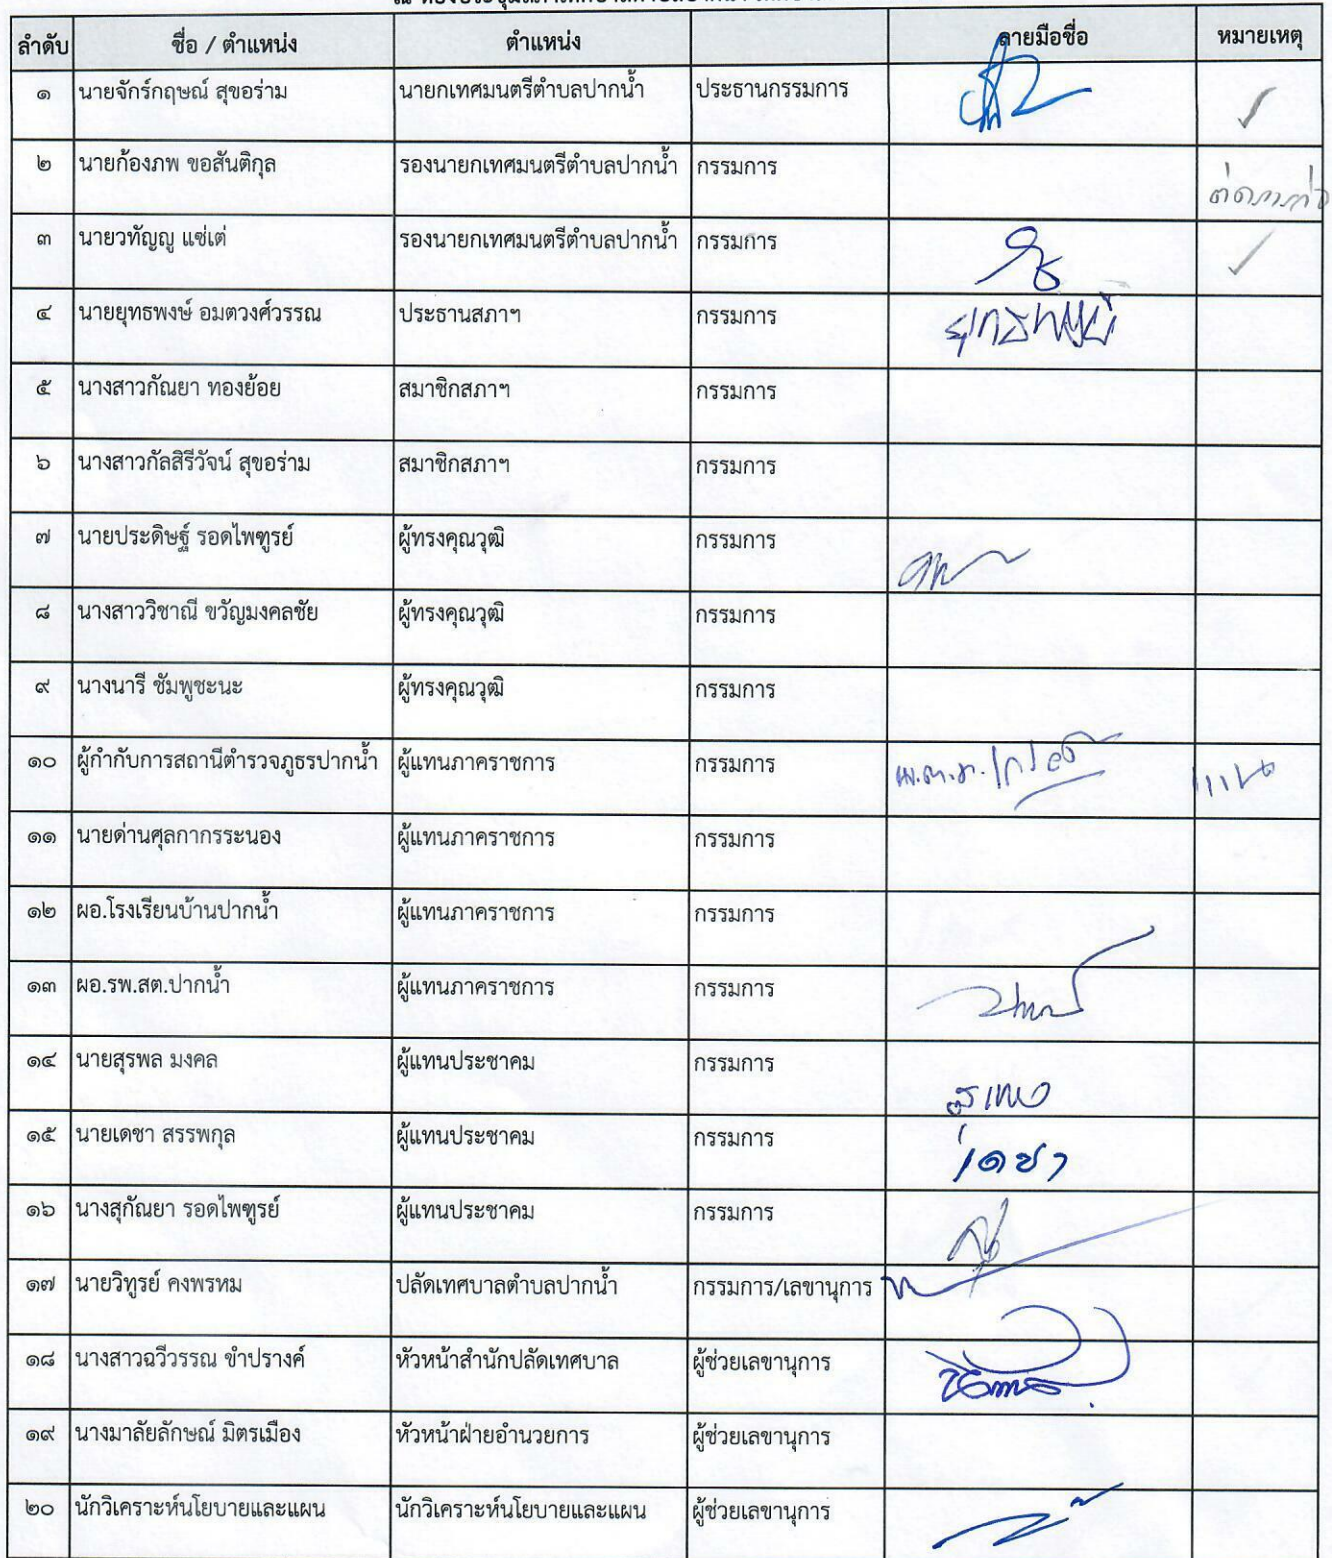 ลำดับ ชื่อ / ตำแหน่ง ตำแหน่ง ลายมือชื่อ หมายเหตุ
๑ นายจักร์กฤษณ์ สุขอร่าม นายกเทศมนตรีตำบลปากน้ำ ประธานกรรมการ ✓
๒ นายก้องภพ ขอสันติกุล รองนายกเทศมนตรีตำบลปากน้ำ กรรมการ
๓ นายวทัญญู แซ่เต่ รองนายกเทศมนตรีตำบลปากน้ำ กรรมการ ✓
๔ นายยุทธพงษ์ อมตวงศ์วรรณ ประธานสภาฯ กรรมการ ยุทธพงษ์
๕ นางสาวกัณยา ทองย้อย สมาชิกสภาฯ กรรมการ
๖ นางสาวกัลสิรีวัจน์ สุขอร่าม สมาชิกสภาฯ กรรมการ
๗ นายประดิษฐ์ รอดไพฑูรย์ ผู้ทรงคุณวุฒิ กรรมการ
๘ นางสาววิชาณี ขวัญมงคลชัย ผู้ทรงคุณวุฒิ กรรมการ
๙ นางนารี ชัมพูชะนะ ผู้ทรงคุณวุฒิ กรรมการ
๑๐ ผู้กำกับการสถานีตำรวจภูธรปากน้ำ ผู้แทนภาคราชการ กรรมการ
๑๑ นายด่านศุลกากรระนอง ผู้แทนภาคราชการ กรรมการ
๑๒ ผอ.โรงเรียนบ้านปากน้ำ ผู้แทนภาคราชการ กรรมการ
๑๓ ผอ.รพ.สต.ปากน้ำ ผู้แทนภาคราชการ กรรมการ
๑๔ นายสุรพล มงคล ผู้แทนประชาคม กรรมการ
๑๕ นายเดชา สรรพกุล ผู้แทนประชาคม กรรมการ เดชา
๑๖ นางสุกัณยา รอดไพฑูรย์ ผู้แทนประชาคม กรรมการ
๑๗ นายวิทูรย์ คงพรหม ปลัดเทศบาลตำบลปากน้ำ กรรมการ/เลขานุการ
๑๘ นางสาวฉวีวรรณ ขำปรางค์ หัวหน้าสำนักปลัดเทศบาล ผู้ช่วยเลขานุการ
๑๙ นางมาลัยลักษณ์ มิตรเมือง หัวหน้าฝ่ายอำนวยการ ผู้ช่วยเลขานุการ
๒๐ นักวิเคราะห์นโยบายและแผน นักวิเคราะห์นโยบายและแผน ผู้ช่วยเลขานุการ